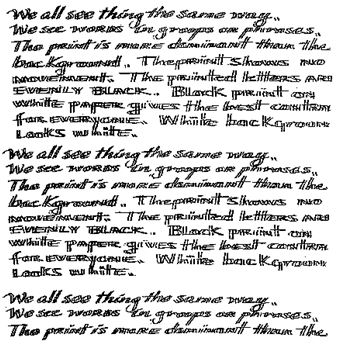 We all see thing the same way..
We see words in groups or phrases..
The print is more dominant than the
background.. The print shows no
movement. The printed letters are
evenly black.. Black print on
white paper gives the best contra
for everyone.. White background
looks white..
We all see thing the same way..
We see words in groups or phrases..
The print is more dominant than the
background.. The print shows no
movement. The printed letters are
evenly black.. Black print on
white paper gives the best contra
for everyone.. White background
looks white..
We all see thing the same way..
We see words in groups or phrases..
The print is more dominant than the